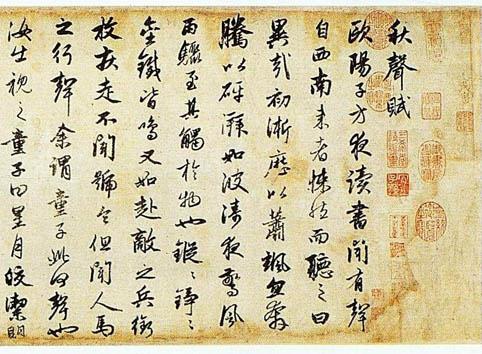 秋聲賦
歐陽子方夜讀書聞有聲
自西南来者悚然而聽之曰
異哉初淅瀝以蕭颯忽奔
騰以砰湃如波濤夜驚風
雨驟至其觸於物也鏦〻錚〻
金鐵皆鳴又如赴敵之兵銜
枚疾走不聞號令但聞人馬
之行聲余謂童子此何聲也
汝出視之童子曰星月皎潔明